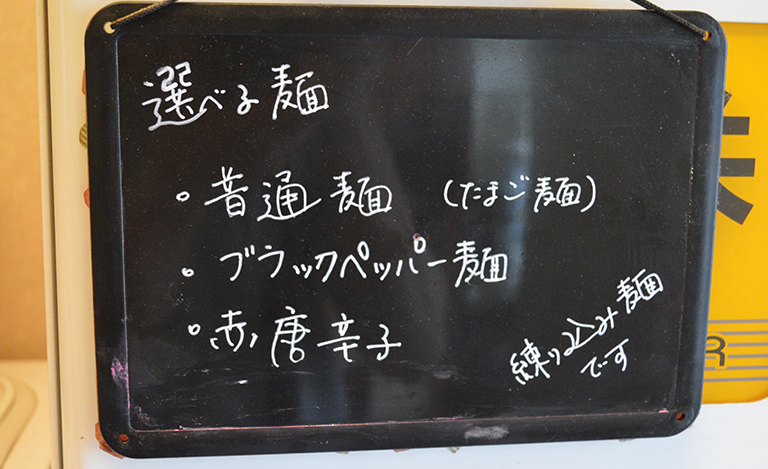 選べる麺
・普通麺 (たまご麺)
・ブラックペッパー麺
・赤唐辛子
練り込み麺
です